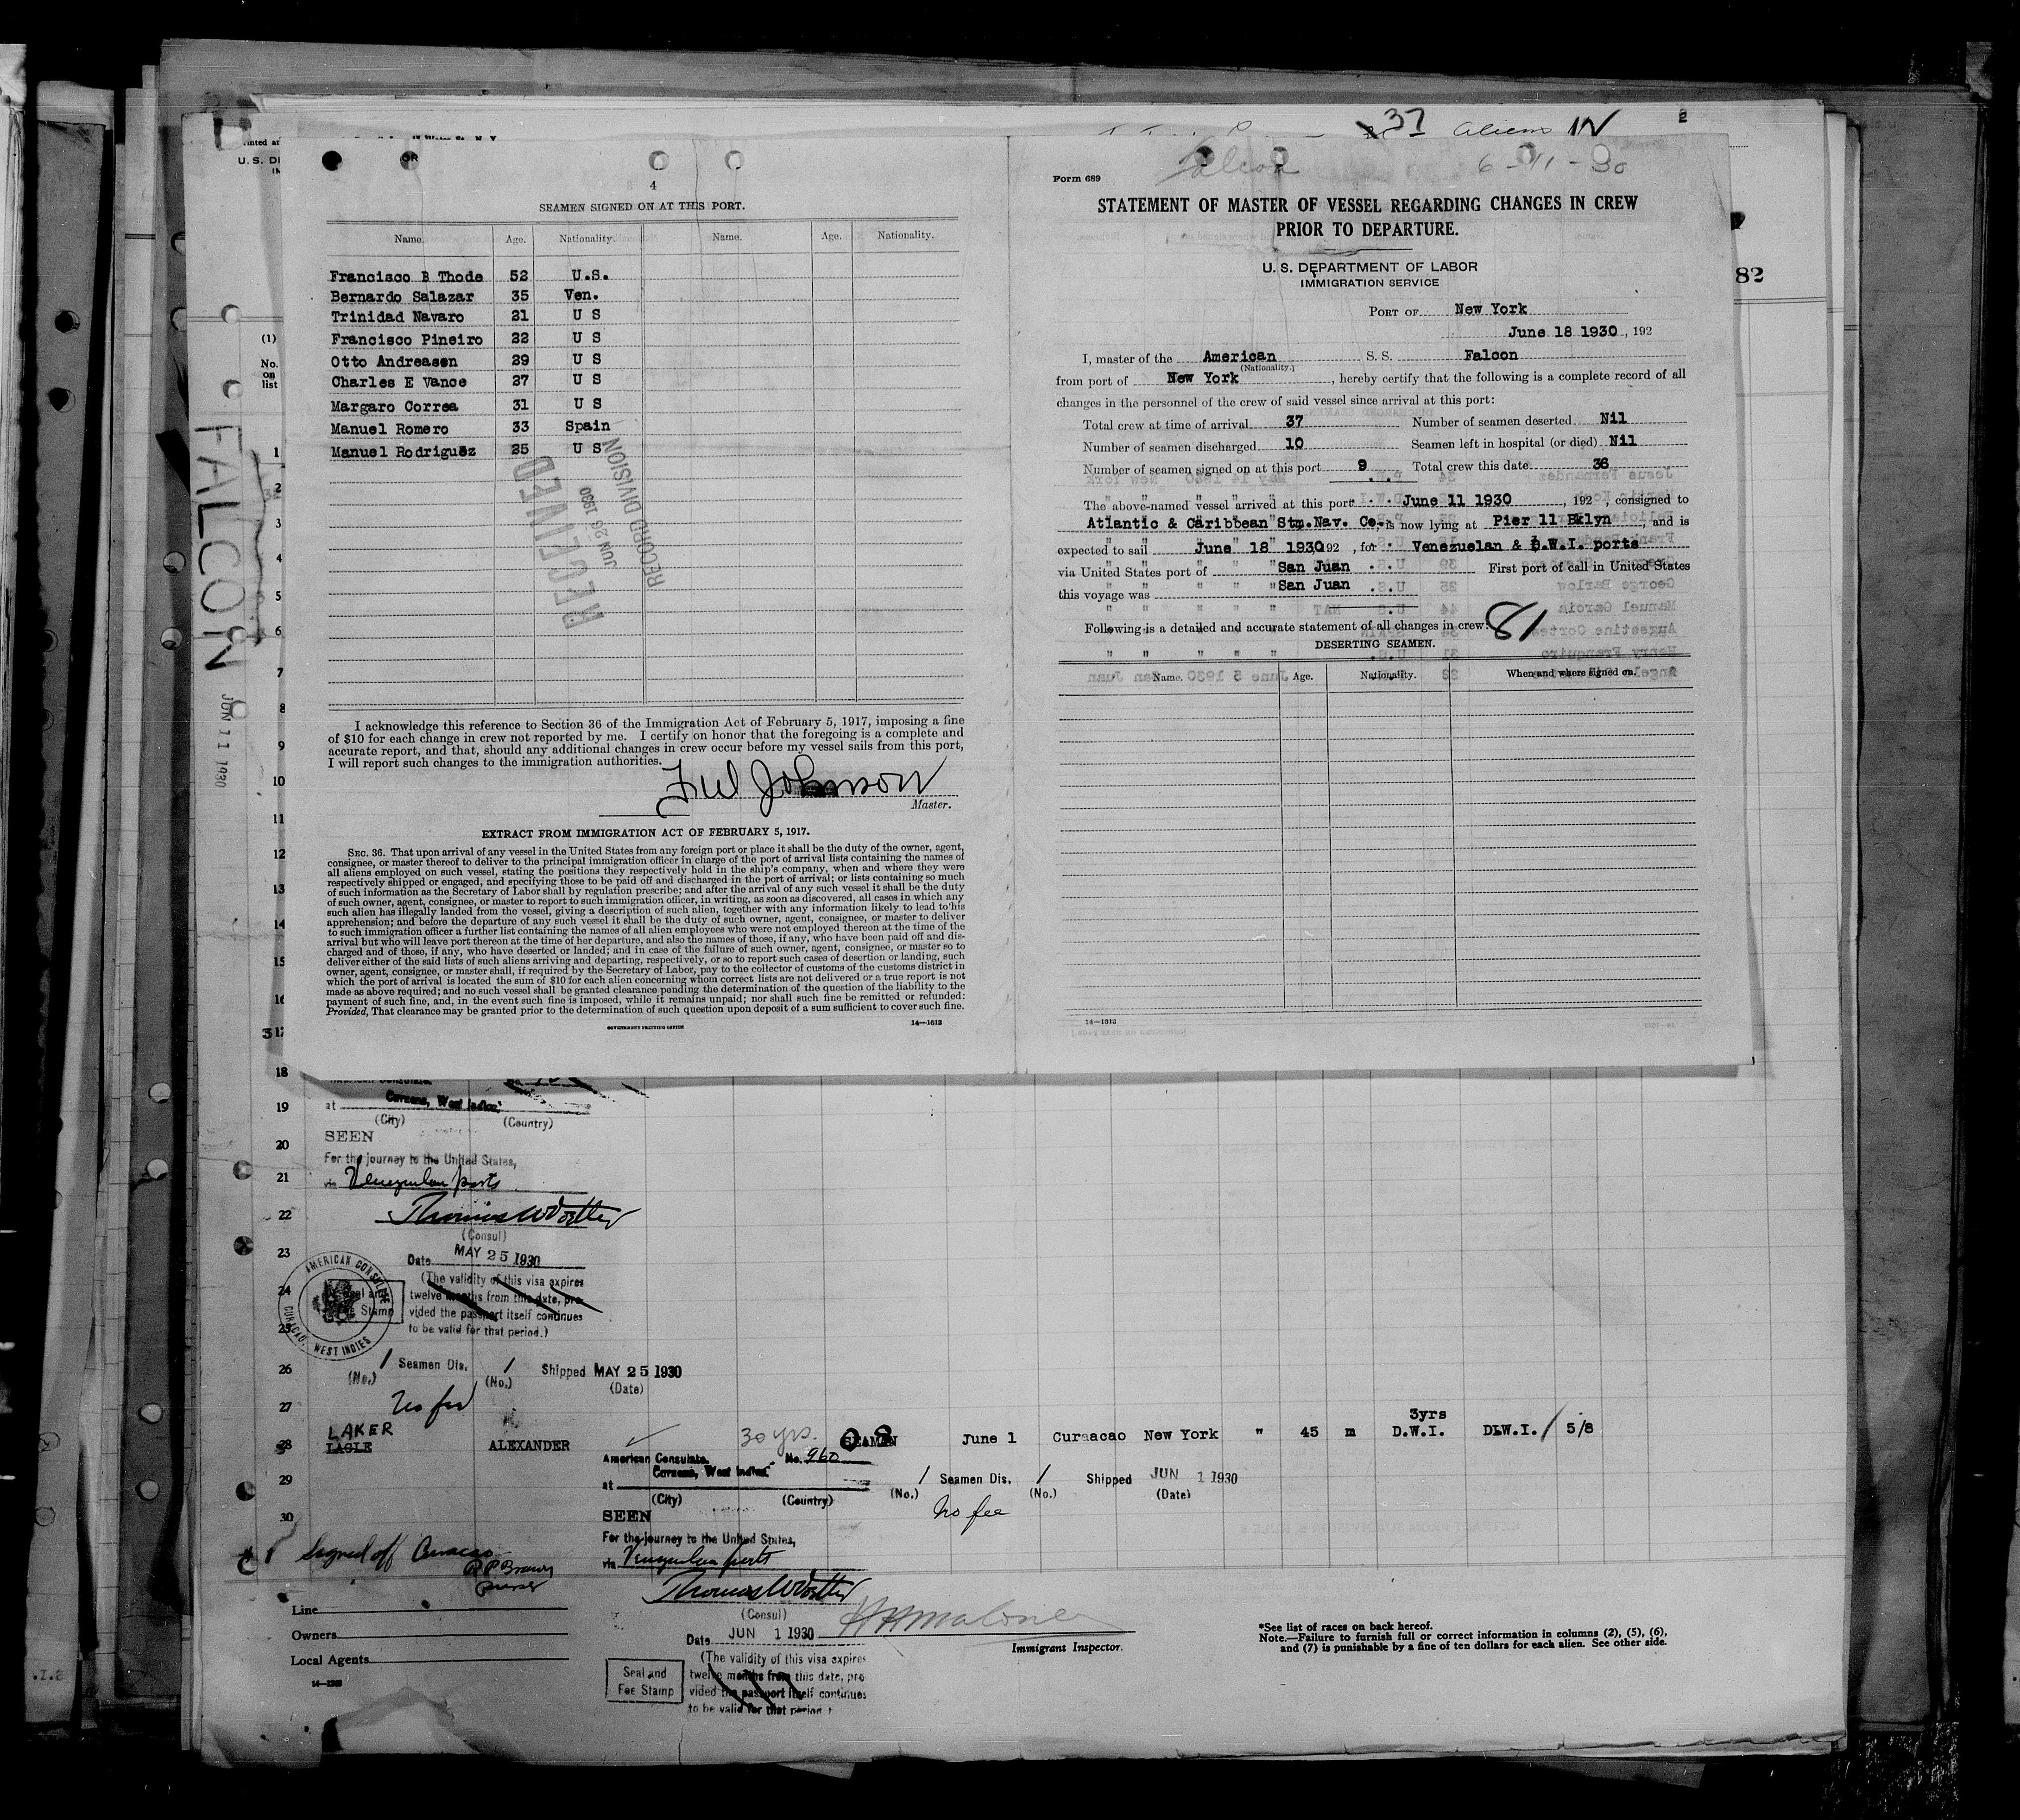 37 aliens
2
OR
4
SEAMEN SIGNED ON AT THIS PORT.
Name. Age. Nationality. Name. Age. Nationality.
Francisco B Thode 52 U.S.
Bernardo Salazar 35 Ven.
Trinidad Navaro 21 U S
Francisco Pineiro 22 U S
Otto Andreasen 29 U S
Charles E Vance 27 U S
Margaro Correa 31 U S
Manuel Romero 33 Spain
Manuel Rodriguez 25 U S
RECEIVED
JUN 26 1930
RECORD DIVISION
I acknowledge this reference to Section 36 of the Immigration Act of February 5, 1917, imposing a fine
of $10 for each change in crew not reported by me. I certify on honor that the foregoing is a complete and
accurate report, and that, should any additional changes in crew occur before my vessel sails from this port,
I will report such changes to the immigration authorities.
Johnson
Master.
EXTRACT FROM IMMIGRATION ACT OF FEBRUARY 5, 1917.
SEC. 36. That upon arrival of any vessel in the United States from any foreign port or place it shall be the duty of the owner, agent,
consignee, or master thereof to deliver to the principal immigration officer in charge of the port of arrival lists containing the names of
all aliens employed on such vessel, stating the positions they respectively hold in the ship's company, when and where they were
respectively shipped or engaged, and specifying those to be paid off and discharged in the port of arrival; or lists containing so much
of such information as the Secretary of Labor shall by regulation prescribe; and after the arrival of any such vessel it shall be the duty
of such owner, agent, consignee, or master to report to such immigration officer, in writing, as soon as discovered, all cases in which any
such alien has illegally landed from the vessel, giving a description of such alien, together with any information likely to lead to his
apprehension; and before the departure of any such vessel it shall be the duty of such owner, agent, consignee, or master to deliver
to such immigration officer a further list containing the names of all alien employees who were not employed thereon at the time of the
arrival but who will leave port thereon at the time of her departure, and also the names of those, if any, who have been paid off and dis-
charged and of those, if any, who have deserted or landed; and in case of the failure of such owner, agent, consignee, or master so to
deliver either of the said lists of such aliens arriving and departing, respectively, or so to report such cases of desertion or landing, such
owner, agent, consignee, or master shall, if required by the Secretary of Labor, pay to the collector of customs of the customs district in
which the port of arrival is located the sum of $10 for each alien concerning whom correct lists are not delivered or a true report is not
made as above required; and no such vessel shall be granted clearance pending the determination of the question of the liability to the
payment of such fine, and, in the event such fine is imposed, while it remains unpaid; nor shall such fine be remitted or refunded:
Provided, That clearance may be granted prior to the determination of such question upon deposit of a sum sufficient to cover such fine.
GOVERNMENT PRINTING OFFICE 14—1513
Falcon 6-11-30
Form 689
STATEMENT OF MASTER OF VESSEL REGARDING CHANGES IN CREW
PRIOR TO DEPARTURE.
U. S. DEPARTMENT OF LABOR
IMMIGRATION SERVICE
PORT OF New York
June 18 1930, 192
I, master of the American S. S. Falcon
(Nationality.)
from port of New York, hereby certify that the following is a complete record of all
changes in the personnel of the crew of said vessel since arrival at this port:
Total crew at time of arrival 37 Number of seamen deserted Nil
Number of seamen discharged 10 Seamen left in hospital (or died) Nil
Number of seamen signed on at this port 9 Total crew this date 36
The above-named vessel arrived at this port June 11 1930, 192 , consigned to
Atlantic & Caribbean Stm.Nav. Co., is now lying at Pier 11 Bklyn, and is
expected to sail June 18 1930, 192 , for Venezuelan & D.W.I. ports
via United States port of San Juan First port of call in United States
this voyage was San Juan
Following is a detailed and accurate statement of all changes in crew:
81
DESERTING SEAMEN.
Name. Age. Nationality. When and where signed on.
14—1513
82
U. S. DE
(1)
No.
on
list
FALCON
JUN 11 1930
1
2
3
4
5
6
7
8
9
10
11
12
13
14
15
16
17
18
19
20
21
22
23
24
25
26
27
28
29
30
at Curacao, West Indies
(City) (Country)
SEEN
For the journey to the United States,
via Venezuelan ports
(Consul)
Date MAY 25 1930
(The validity of this visa expires
twelve months from this date, pro-
vided the passport itself continues
to be valid for that period.)
AMERICAN CONSULATE
CURACAO, WEST INDIES
1 Seamen Dis. 1 Shipped MAY 25 1930
(No.) (No.) (Date)
No fee
LAKER
LAGLE ALEXANDER 30 yrs. SEAMEN June 1 Curaacao New York " 45 m 3yrs D.W.I. DLW.I. 5/8
American Consulate, No. 960
at Curacao, West Indies
(City) (Country)
1 Seamen Dis. 1 Shipped JUN 1 1930
(No.) (No.) (Date)
No fee
SEEN
For the journey to the United States,
via Venezuelan ports
(Consul)
Date JUN 1 1930
(The validity of this visa expires
twelve months from this date, pro
vided the passport itself continues
to be valid for that period
Seal and
Fee Stamp
Signed off Curacao
Purser
Line
Owners
Local Agents
Immigrant Inspector.
*See list of races on back hereof.
Note.—Failure to furnish full or correct information in columns (2), (5), (6),
and (7) is punishable by a fine of ten dollars for each alien. See other side.